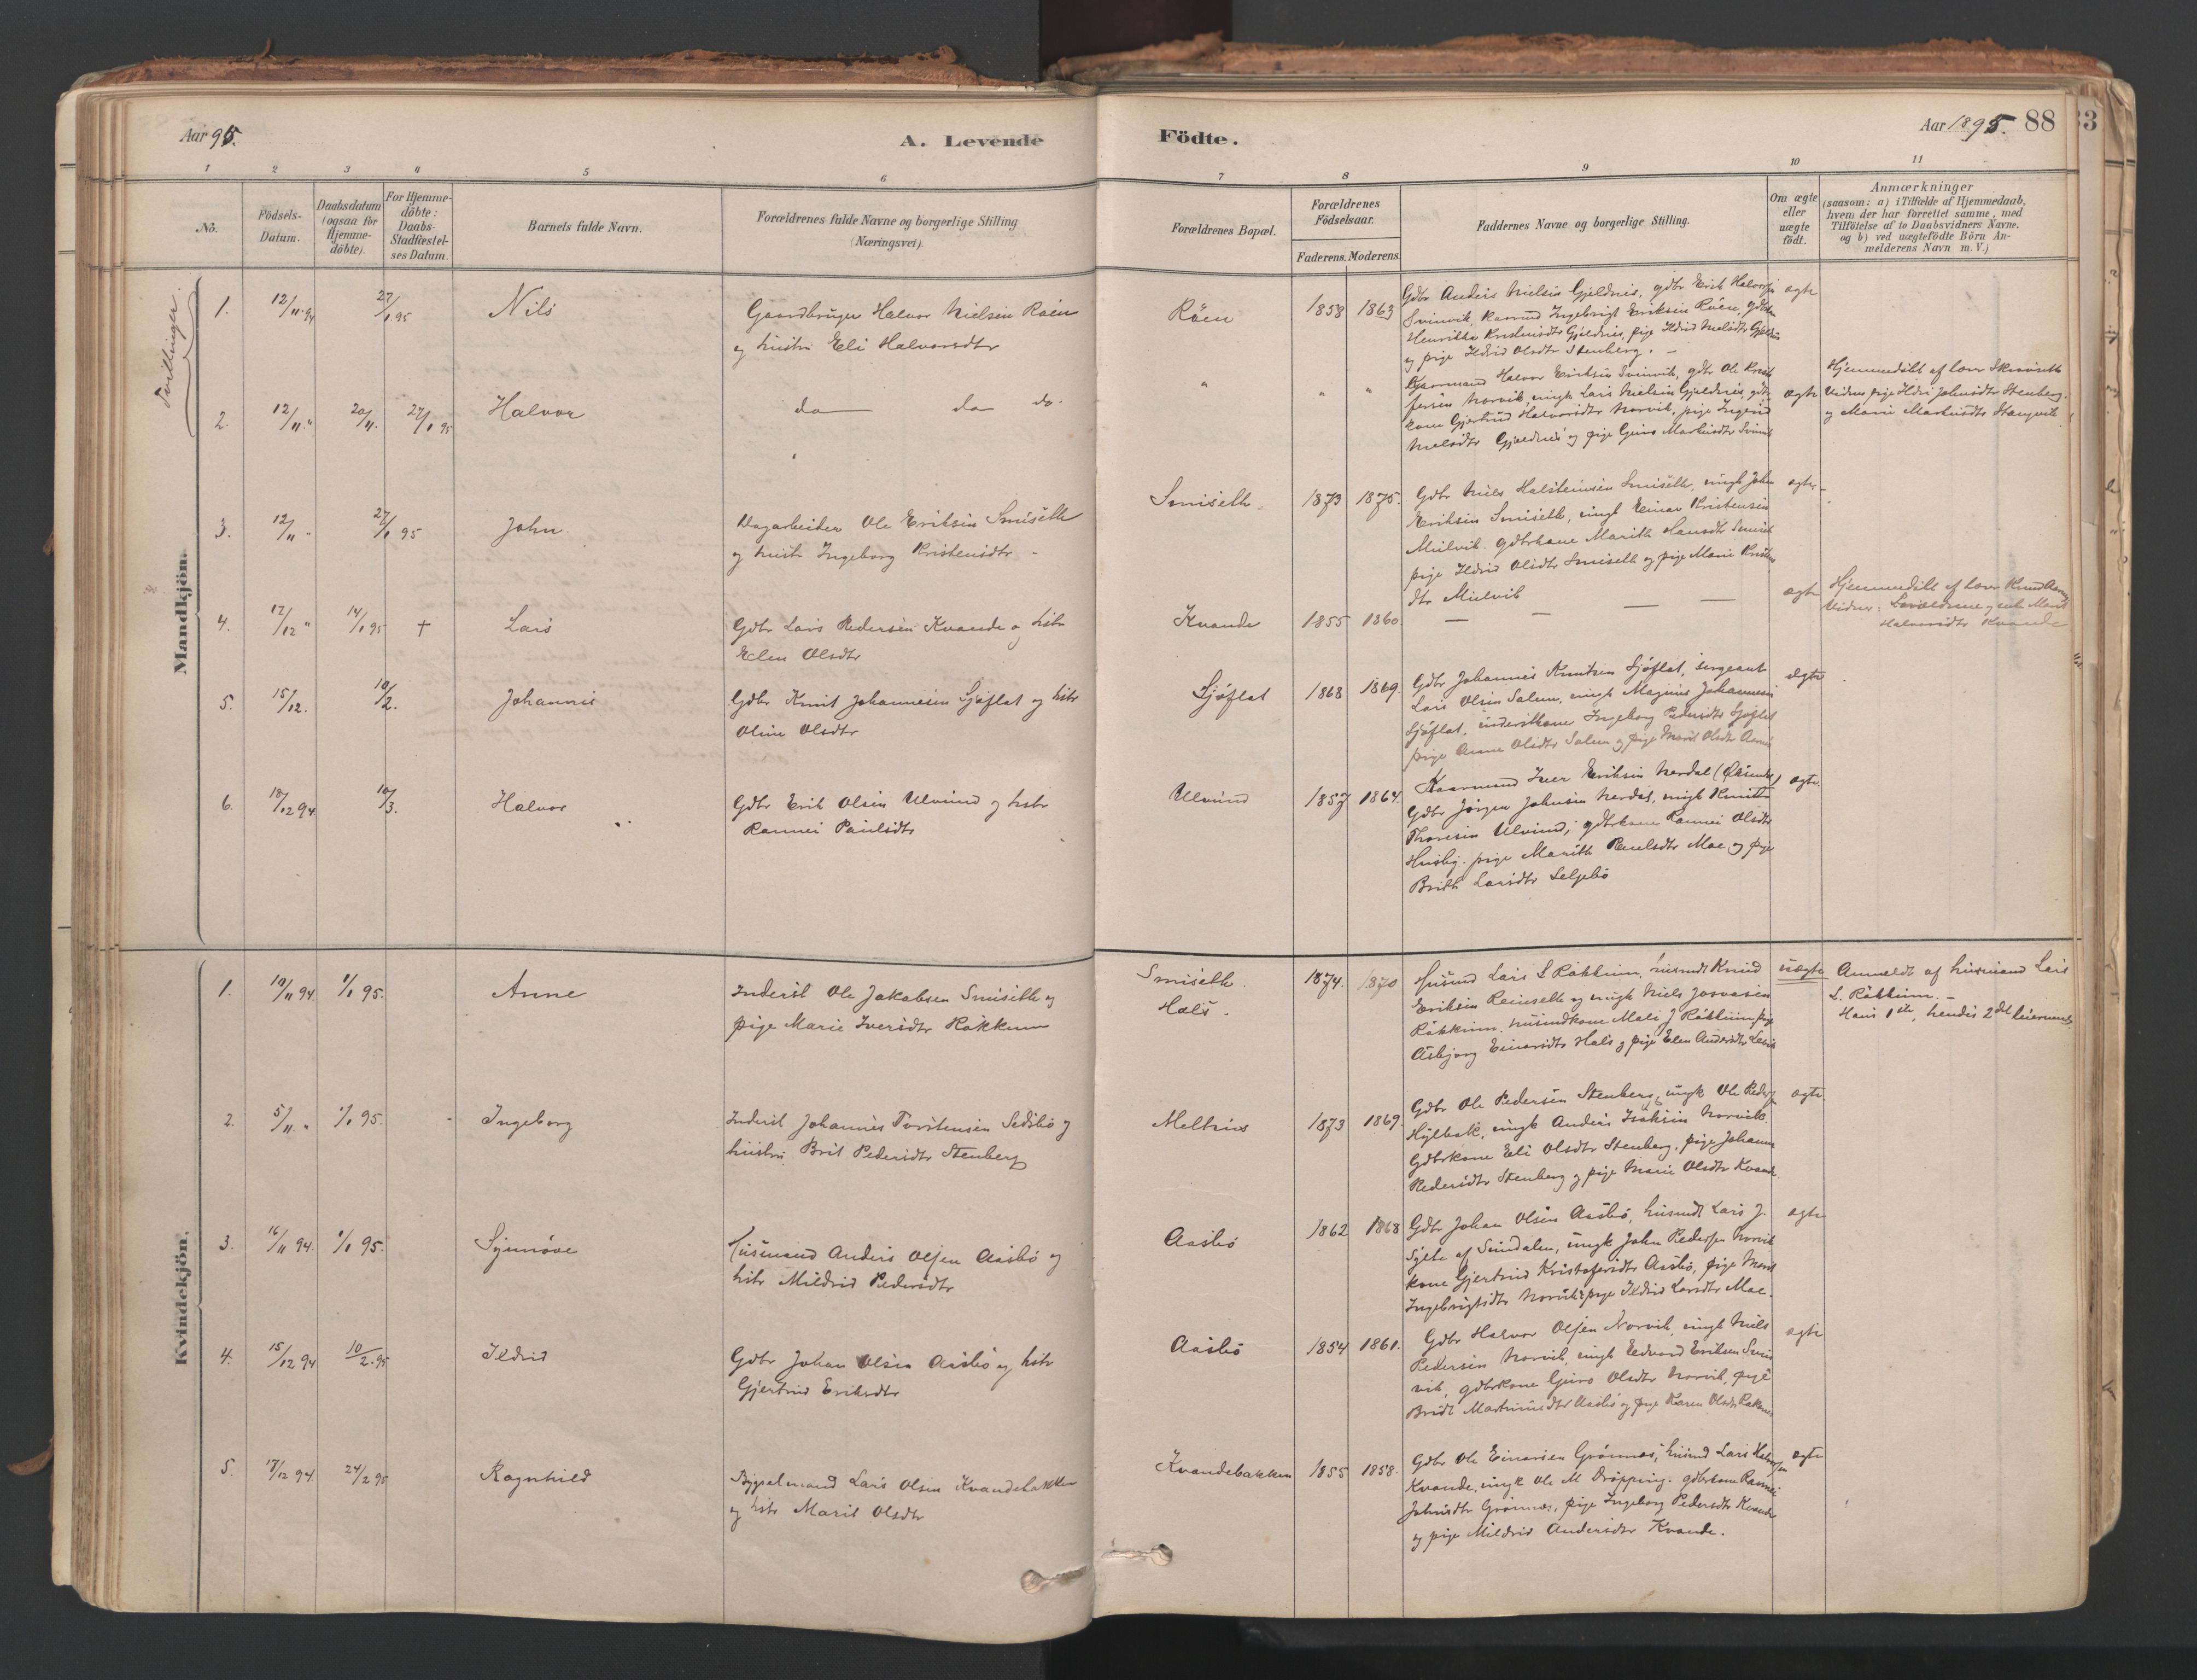 Aar 95.
A. Levende
Födte.
Aar 1895. 88
1 2 3 4 5 6 7 8 9 10 11
No.
Födsels-
Datum.
Daabsdatum
(ogsaa for
Hjemme-
döbte).
For Hjemme-
döbte:
Daabs-
Stadfæstel-
ses Datum.
Barnets fulde Navn.
Forældrenes fulde Navne og borgerlige Stilling
(Næringsvei).
Forældrenes Bopæl.
Forældrenes
Födselsaar.
Faderens. Moderens.
Faddernes Navne og borgerlige Stilling.
Om ægte
eller
uægte
födt.
Anmærkninger
(saasom: a) i Tilfælde af Hjemmedaab,
hvem der har forrettet samme, med
Tilföielse af to Daabsvidners Navne,
og b) ved uægtefödte Börn An-
melderens Navn m. V.)
Tvillinger.
Mandkjön.
1. 12/11 94 27/1 95 Nils
Gaardbruger Halvor Nielsen Röen
og hustru Eli Halvorsdtr
Röen 1858 1863
Gdbr Anders Nielsen Gjeldnes, gdbr Erik Halvorsen
Svinvik, Kaarmd Ingebrigt Eriksen Röen, gdbrkone
Henrikke Kristensdtr Gjeldnes, pige Ildrid Nielsdtr Gjeldnes
og pige Ildrid Olsdtr Stenberg. -
ægte
2. 12/11 " 20/11. 27/1 95 Halvor
do do do.
" " "
Kaarmand Halvor Eriksen Svinvik, gdbr Ole Krist
fersen Norvik, ungk Lars Nielsen Gjeldnes, gdbr
kone Gjertrud Halvorsdtr Norvik, pige Ingerid
Nielsdtr Gjeldnes og pige Guro Markusdtr Svinvik
ægte
Hjemmedöbt af
Vidner pige Ildri Johnsdtr Stenberg
og Marie Markusdtr Stangvik
3. 12/11 " 27/1 95 John.
Dagarbeider Ole Eriksen Smiseth
og hustr Ingeborg Kristensdtr -
Smiseth. 1873 1875.
Gdbr Niels Halsteinsen Smiseth, ungk John
Eriksen Smiseth, ungk Einar Kristensen
Mielvik. gdbrkone Marith Hansdtr Smiseth
pige Ildrid Olsdtr Smiseth og pige Marie Kristens
dtr Mielvik
ægte -
4. 17/12 " 14/1 95 † Lars
Gdbr Lars Pedersen Kvande og hstr
Elen Olsdtr
Kvande 1855 1860.
— — — —
ægte
Hjemmedöbt af
Vidner: Forældrene og enke Marit
Halvorsdtr Kvande
5. 15/12. 10/2. Johannes
Gdbr Knut Johannesen Sjöflat og hstr
Oline Olsdtr
Sjöflat 1868 1869.
Gdbr Johannes Knutsen Sjöflat, sergeant
Lars Olsen Salem, ungk Magnus Johannesen
Sjöflat, inderstkone Ingeborg Pedersdtr Sjöflat
pige Anne Olsdtr Salem og pige Marit Olsdtr
ægte
6. 18/12 94 10/3. Halvor
Gdbr Erik Olsen Ulvund og hstr
Rannei Paulsdtr
Ulvund 1857 1864.
Kaarmand Iver Eriksen Nerdal (Öksendal)
Gdbr Jörgen Johnsen Nerdal, ungk Knut
Thoresen Ulvund; gdbrkone Rannei Olsdtr
Husby. pige Marith Paulsdtr Moe og pige
Brith Larsdtr Seljebö
ægte.
Kvindekjön.
1. 10/11 94. 1/1 95. Anne
Inderst Ole Jakobsen Smiseth og
pige Marie Iversdtr Rökkum
Smiseth.
Hals.
1874. 1870
Husmd Lars L Rökkum, husmdt Knud
Eriksen Reinseth og ungk Niels
Rökkum. husmdkone Mali J Rökkum pige
Asbjorg Einarsdtr Hals og pige Elen Andersdtr
uægte
Anmeldt af husmand Lars
L. Rökkum. -
Hans 1ste, hendes 2det leiermaal
2. 5/11. " 1/1 95. Ingeborg
Inderst Johannes Torstensen Sedsbö og
hustru Brit Pedersdtr Stenberg
Meltnes 1873 1869.
Gdbr Ole Pedersen Stenberg, ungk Ole Peders
Hylbak, ungk Anders Isaksen Norvik.
Gdbrkone Eli Olsdtr Stenberg, pige Johanna
Pedersdtr Stenberg og pige Marie Olsdtr Kvande.
ægte.
3. 16/11 94. 1/1 95. Synnöve
Husmand Anders Olsen Aasbö og
hstr Mildrid Pedersdtr
Aasbö 1862 1868
Gdbr Johan Olsen Aasbö, husmdt Lars J.
Sylte af Sundalen, ungk John Pedersen Norvik
kone Gjertrud Kristofersdtr Aasbö, pige Marit
Ingebrigtsdtr Norvik & pige Ildrid Larsdtr Moe.
ægte
4. 15/12 94 10/2. 95 Ildrid
Gdbr Johan Olsen Aasbö og hstr
Gjertrud Eriksdtr
Aasbö 1854 1861.
Gdbr Halvor Olsen Norvik, ungk Niels
Pedersen Norvik, ungk Edvard Eriksen Svin
vik, gdbrkone Guro Olsdtr Norvik, pige
Bridt Martinusdtr Aasbö og pige Karen Olsdtr
ægte
5. 17/12 94. 24/2 95 Ragnhild
Bygselmand Lars Olsen Kvandebakken
og hstr Marit Olsdtr
Kvandebakken 1855 1858.
Gdbr Ole Einarsen Grönnes, husmd Lars Halvorsen
Kvande, ungk Ole M Dröpping. gdbrkone Rannei
Johnsdtr Grönnes, pige Ingeborg Pedersdtr Kvande
og pige Mildrid Andersdtr Kvande.
ægte